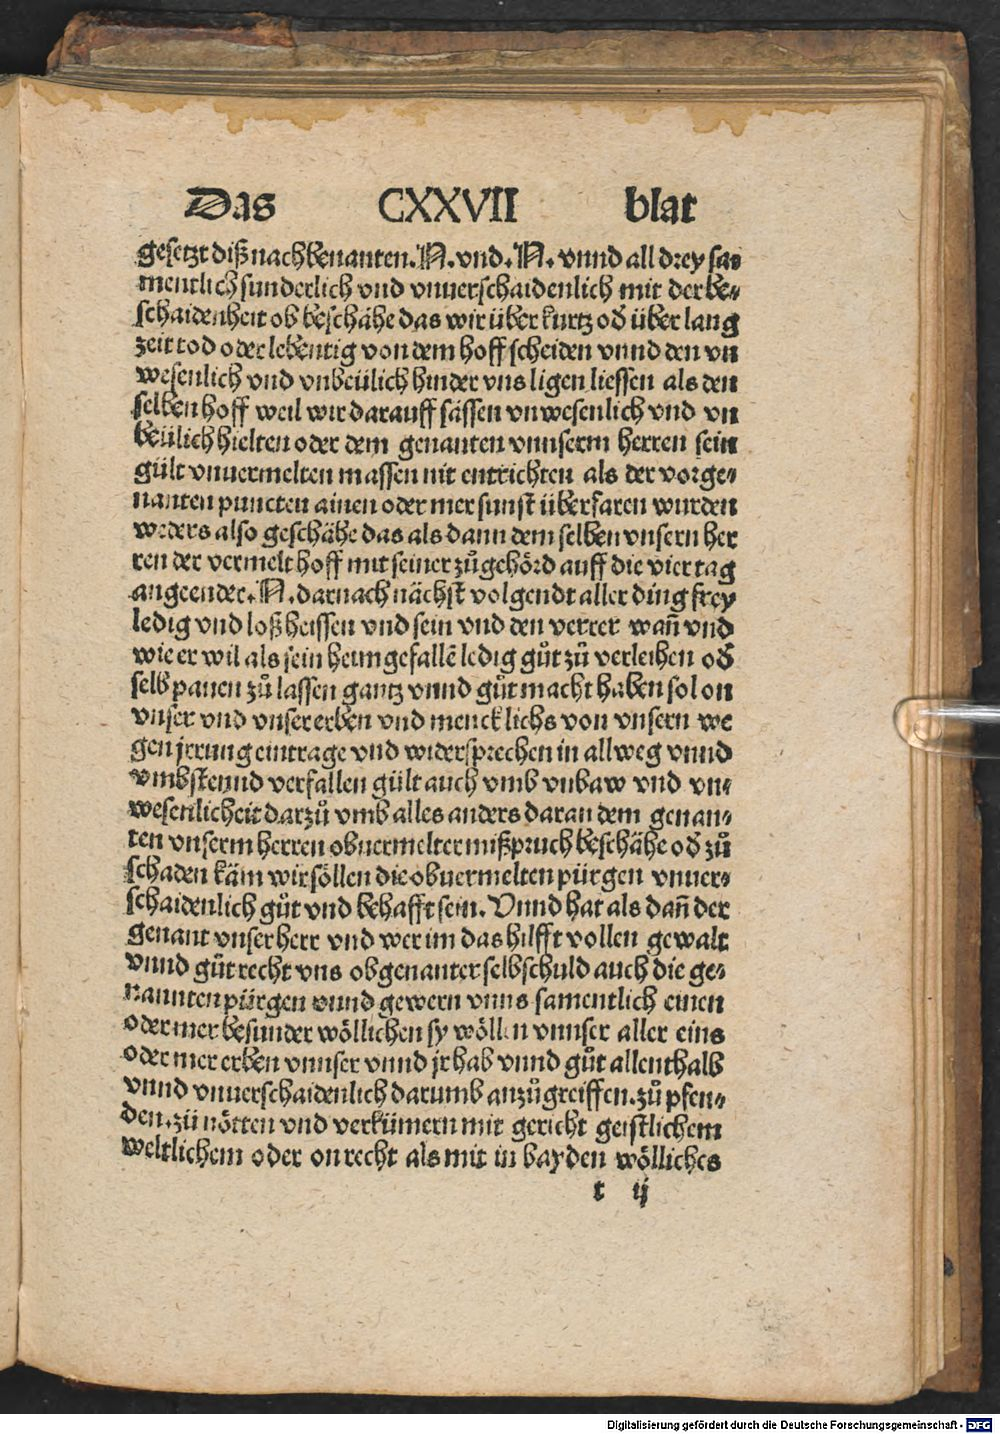 Das CXXVII blat
gesetzt diß nachbenanten. N. vnd. N. vnnd all drey sa⸗
mentlich sunderlich vnd vnuerschaidenlich mit der be⸗
schaidenheit ob beschähe das wir über kurtz oď über lang
zeit tod oder lebentig von dem hoff scheiden vnnd den vn
wesenlich vnd vnbeülich hinder vns ligen liessen als den
selben hoff weil wir darauff sässen vnwesenlich vnd vn
beülich hielten oder dem genanten vnnserm herren sein
gült vnuermelten massen nit entrichten als der vorge⸗
nanten puncten ainen oder mer sunst überfaren wurden
weders also geschähe das als dann dem selben vnsern her
ren der vermelt hoff mit seiner zůgehörd auff die vier tag
angeender. N. darnach nächst volgendt aller ding frey
ledig vnd loß heissen vnd sein vnd den verrer wañ vnd
wie er wil als sein heimgefallē ledig gůt zů verleihen oď
selb pauen zů lassen gantz vnnd gůt macht haben sol on
vnser vnd vnser erben vnd mencklichs von vnsern we
gen jrrung eintrage vnd widersprechen in allweg vnnd
vmb stennd verfallen gült auch vmb vnbaw vnd vn⸗
wesenlicheit darzů vmb alles anders daran dem genan⸗
ten vnserm herren obuermelter mißpruch beschähe oď zů
schaden käm wir söllen die obuermelten pürgen vnuer⸗
schaidenlich gůt vnd behafft sein. Vnnd hat als dañ der
genant vnser herr vnd wer im das hilfft vollen gewalt
vnnd gůt recht vns obgenanter selbschuld auch die ge⸗
nannten pürgen vnnd gewern vnns samentlich einen
oder mer besunder wöllichen sy wöllen vnnser aller eins
oder mer erben vnnser vnnd jr hab vnnd gůt allenthalb
vnnd vnuerschaidenlich darumb anzůgreiffen. zů pfen⸗
den. zů nötten vnd verkümern mit gericht geistlichem
weltlichem oder on recht als mit in bayden wölliches
t ij
Digitalisierung gefördert durch die Deutsche Forschungsgemeinschaft - DFG